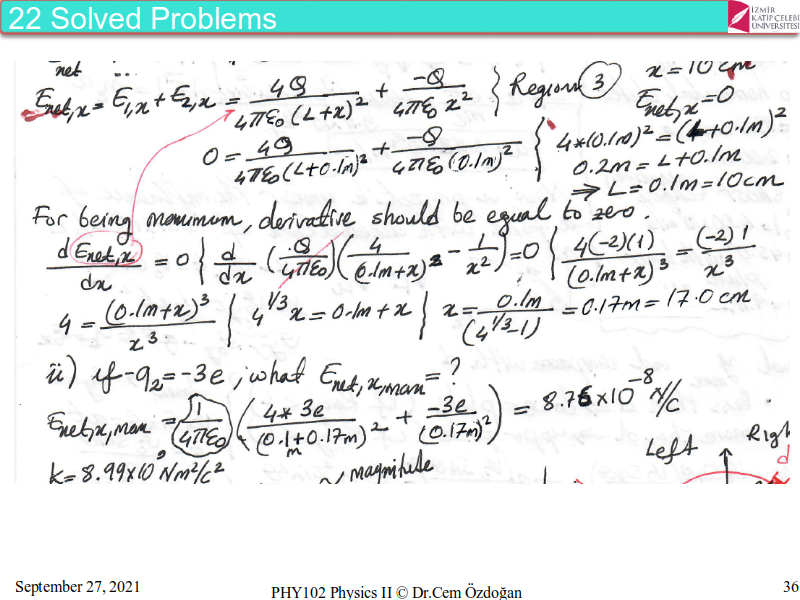 22 Solved Problems
İZMİR
KATİP ÇELEBİ
ÜNİVERSİTESİ
net ...
x = 10 cm
E_net,x = E_1,x + E_2,x = 4Q / 4πε₀(L+x)² + -Q / 4πε₀ x² } Region 3
E_net,x = 0
0 = 4Q / 4πε₀(L+0.1m)² + -Q / 4πε₀(0.1m)² { 4*(0.1m)² = (L+0.1m)²
0.2m = L+0.1m
⇒ L = 0.1m = 10cm
For being maximum, derivative should be equal to zero.
d E_net,x / dx = 0 { d/dx (Q / 4πε₀)(4 / (0.1m+x)² - 1/x²) = 0 { 4(-2)(1) / (0.1m+x)³ = (-2)1 / x³
4 = (0.1m+x)³ / x³ { 4^1/3 x = 0.1m + x { x = 0.1m / (4^1/3 - 1) = 0.17m = 17.0 cm
ii) if -q₂ = -3e, what E_net,x,max = ?
E_net,x,max = 1 / 4πε₀ (4*3e / (0.1m+0.17m)² + -3e / (0.17m)²) = 8.76x10⁻⁸ N/C
k = 8.99x10⁹ Nm²/C²
magnitude
Left
Righ
September 27, 2021
PHY102 Physics II © Dr.Cem Özdoğan
36